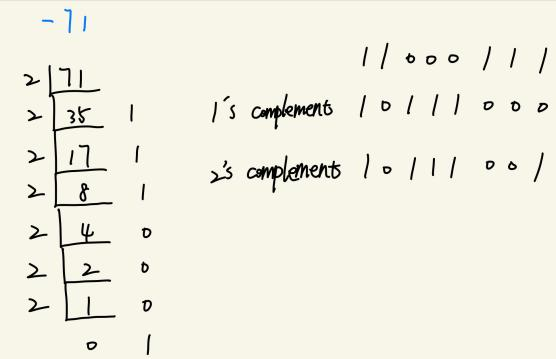 -71
2 71
2 35 1
2 17 1
2 8 1
2 4 0
2 2 0
2 1 0
0 1
11000111
1's complements 10111000
2's complements 10111001